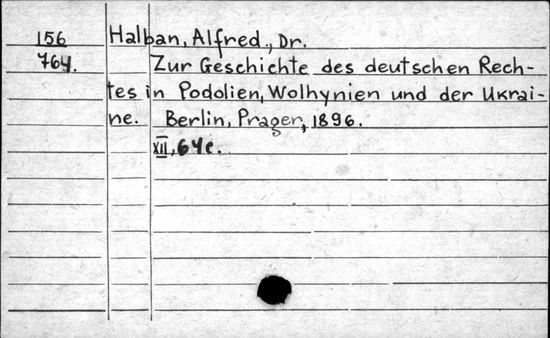 156 Halban, Alfred, Dr.
764. Zur Geschichte des deutschen Rech-
tes in Podolien, Wolhynien und der Ukrai-
ne. Berlin, Prager, 1896.
XII, 64 c.